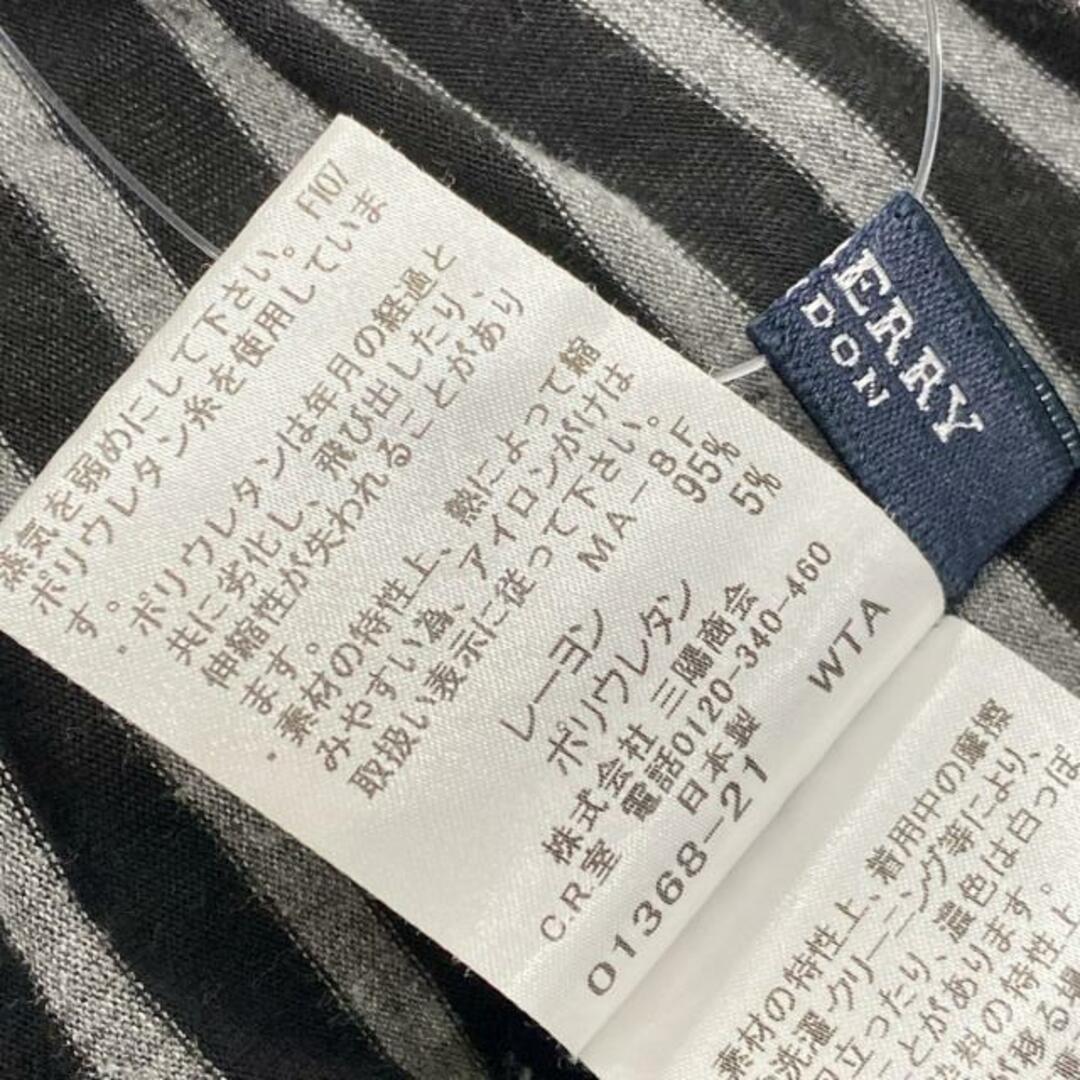 F107
蒸気を弱めにして下さい。
ポリウレタン糸を使用していま
す。
・ポリウレタンは年月の経過と
共に劣化し、飛び出したり、
伸縮性が失われることがあり
ます。
・素材の特性上、熱によって縮
みやすい為、アイロンがけは
取扱い表示に従って下さい。
MA-8F
レーヨン 95%
ポリウレタン 5%
株式会社 三陽商会
C.R.室 電話0120-340-460
日本製
01368-21 WTA
素材の特性上、着用中の摩擦
洗濯・クリーニング等により、
立ったり、濃色は白っぽ
ことがあります。
料の特性上
が移る場
ERRY
DON